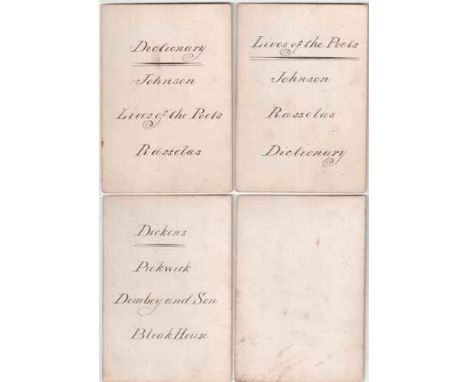 Dictionary
Johnson
Lives of the Poets
Rasselas
Lives of the Poets
Johnson
Rasselas
Dictionary
Dickens
Pickwick
Dombey and Son
Bleak House